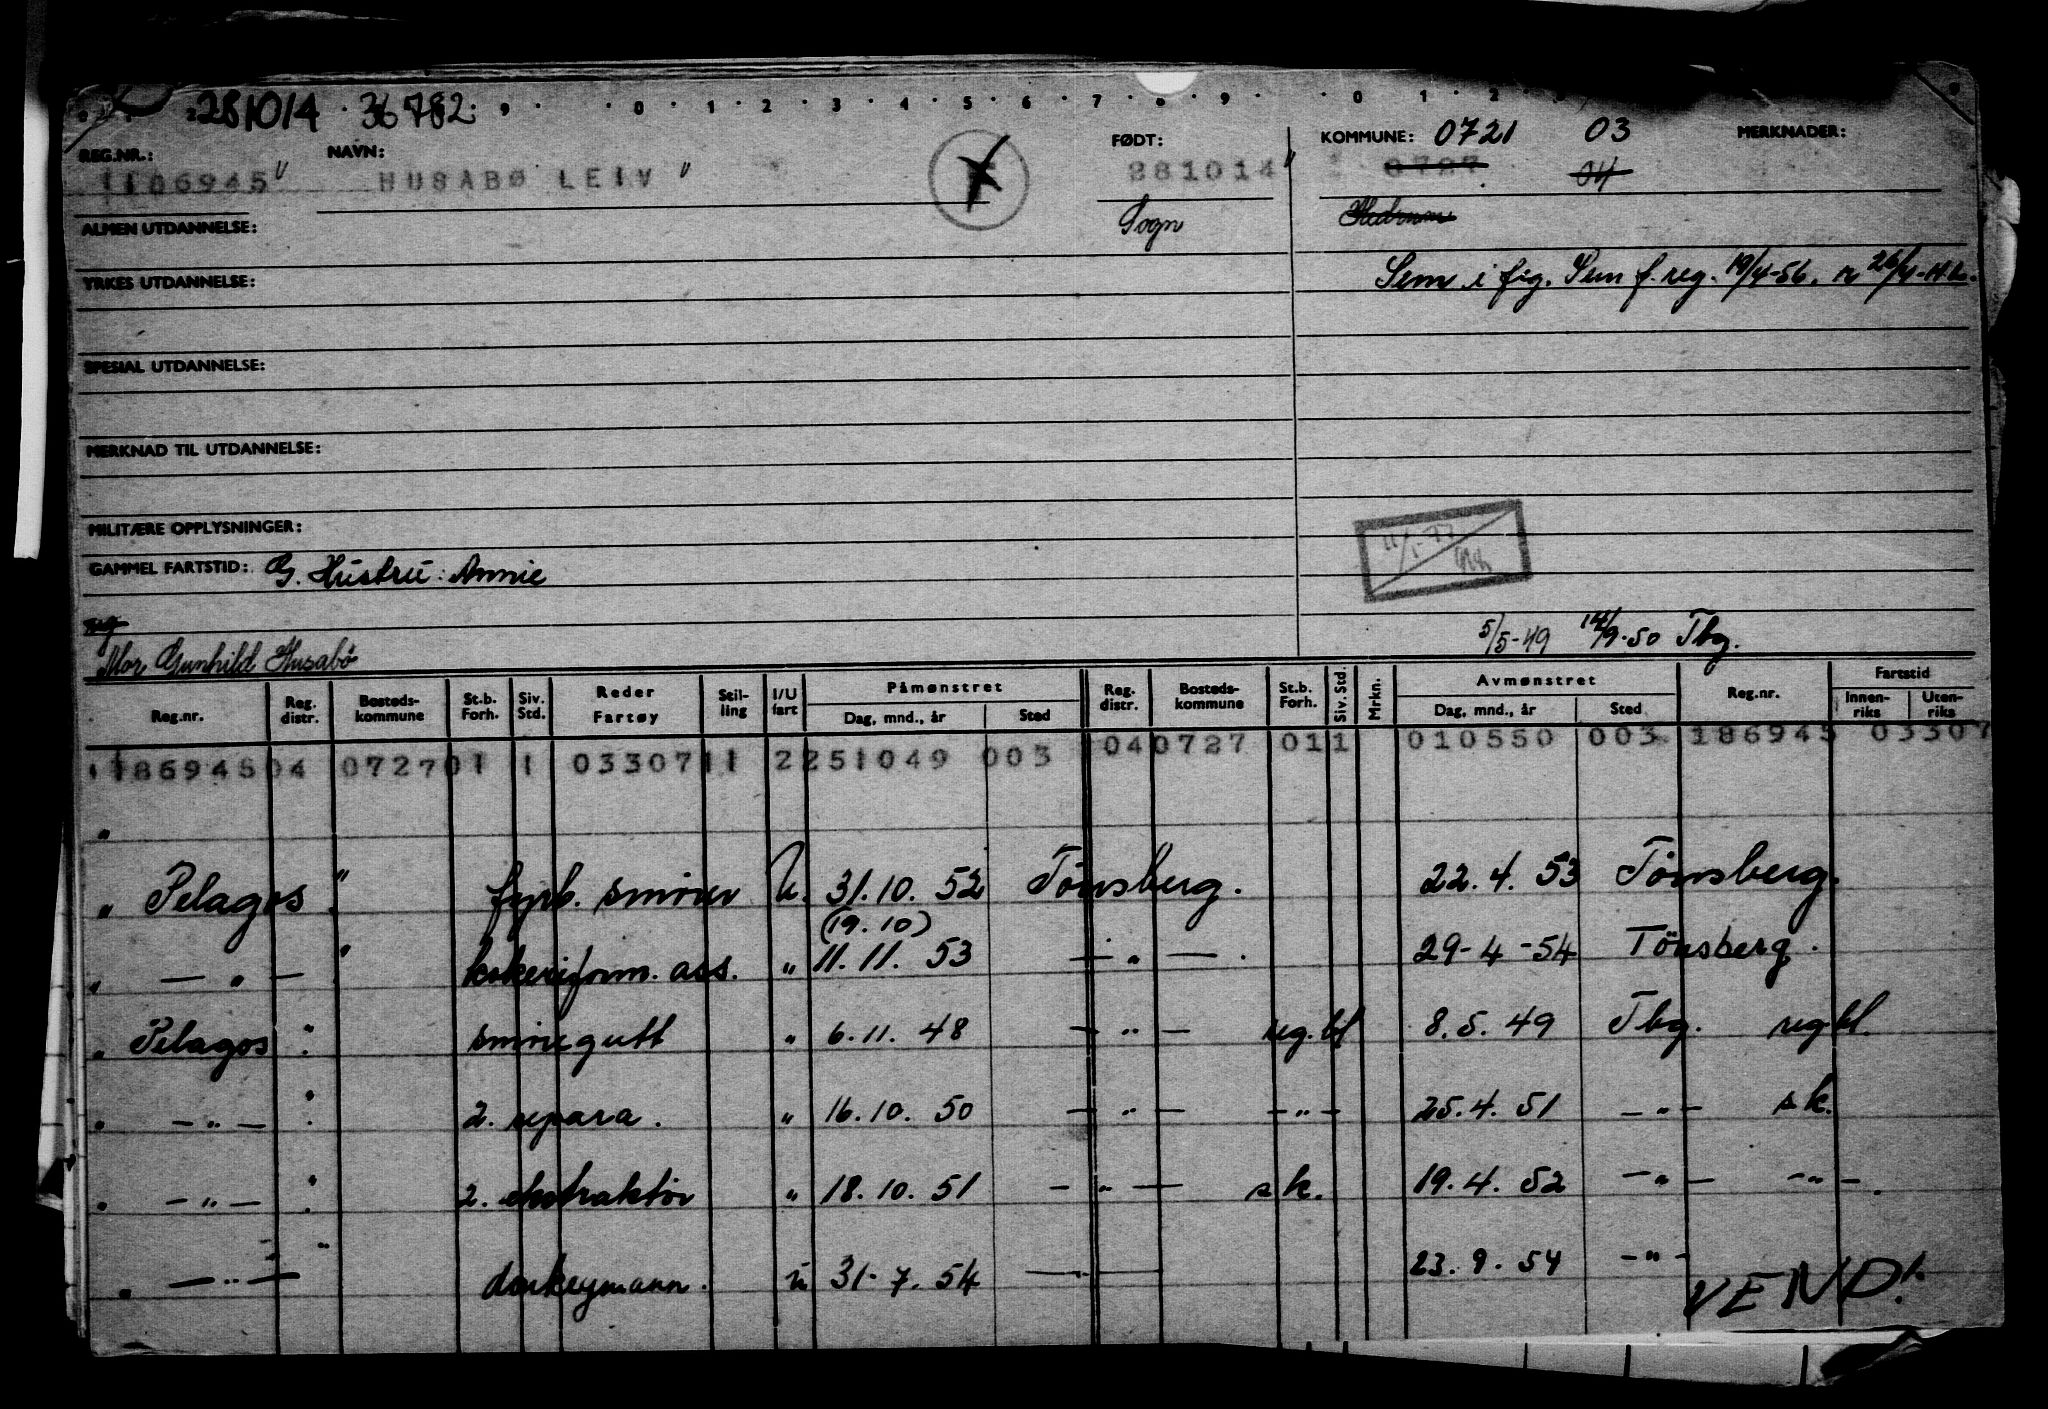 281014 36782
0 1 2 3 4 5 6 7 8 9 0 1 2
REG.NR.: NAVN: FØDT: KOMMUNE: 0721 03 MERKNADER:
1186945" HUSABØ LEIV " 281014" 0727 04
ALMEN UTDANNELSE: Sogn Hedrum
YRKES UTDANNELSE: Sem i flg. Sem f. reg. 19/4-56.
SPESIAL UTDANNELSE:
MERKNAD TIL UTDANNELSE:
MILITÆRE OPPLYSNINGER:
GAMMEL FARTSTID: G. Hustru: Annie
5/5-49 14/9-50 Tbg.
Mor Gunhild Husabø
Reg.nr. Reg. distr. Bosteds-kommune St.b. Forh. Siv. Std. Reder Fartøy Stil-ling I/U fart Påmønstret Dag, mnd., år Sted Reg. distr. Bosteds-kommune St.b. Forh. Siv. Std. Mrkn. Avmønstret Dag, mnd., år Sted Reg.nr. Fartstid Innen-riks Uten-riks
118694504 072701 1 0330711 2251049 003 040727 011 010550 003 186945 03307
"
" Pelagos " fyrb. smører U. 31.10.52 Tönsberg. 22.4.53 Tönsberg.
(19.10)
" — " — " kokeriform. ass. " 11.11.53 — " — . 29-4-54 Tönsberg.
" Pelagos " smøregutt " 6.11.48 — " — reg. bl 8.5.49 Tbg. reg bl.
" — " — " 2. repara. " 16.10.50 — " — — " — 25.4.51 — " — sk.
" — " — " 2. ekstraktör " 18.10.51 — " — sk. 19.4.52 — " — — " — .
" — " — " donkeymann. u 31.7.54 — " — 23.9.54 — " —
VEND!